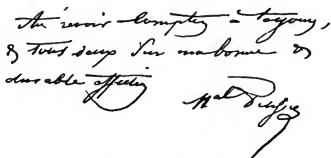 Au revoir Comptez à toujours,
& tous deux sur ma bonne &
durable affection
Mal